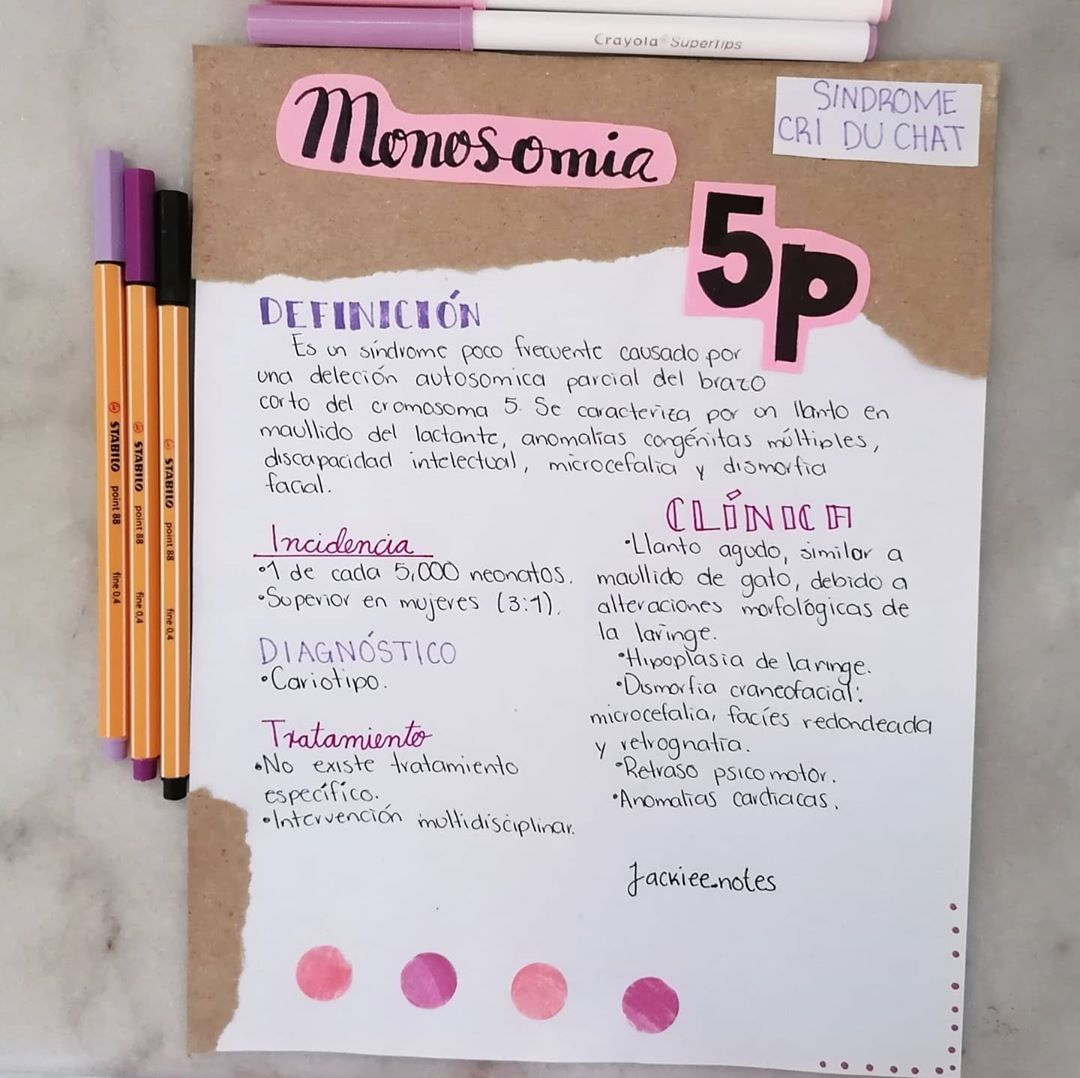 Crayola Supertips
Monosomia
SINDROME
CRI DU CHAT
5p
DEFINICIÓN
Es un síndrome poco frecuente causado por
una deleción autosomica parcial del brazo
corto del cromosoma 5. Se caracteriza por un llanto en
maullido del lactante, anomalías congénitas múltiples,
discapacidad intelectual, microcefalia y dismorfia
facial.
Incidencia
•1 de cada 5,000 neonatos.
•Superior en mujeres (3:1).
DIAGNÓSTICO
•Cariotipo.
Tratamiento
•No existe tratamiento
específico.
•Intervención multidisciplinar.
CLÍNICA
•Llanto agudo, similar a
maullido de gato, debido a
alteraciones morfológicas de
la laringe.
•Hipoplasia de laringe.
•Dismorfia craneofacial:
microcefalia, facíes redondeada
y retrognatia.
•Retraso psicomotor.
•Anomalías cardiacas.
Jackiee.notes
STABILO point 88 fine 0,4
STABILO point 88 fine 0,4
STABILO point 88 fine 0,4